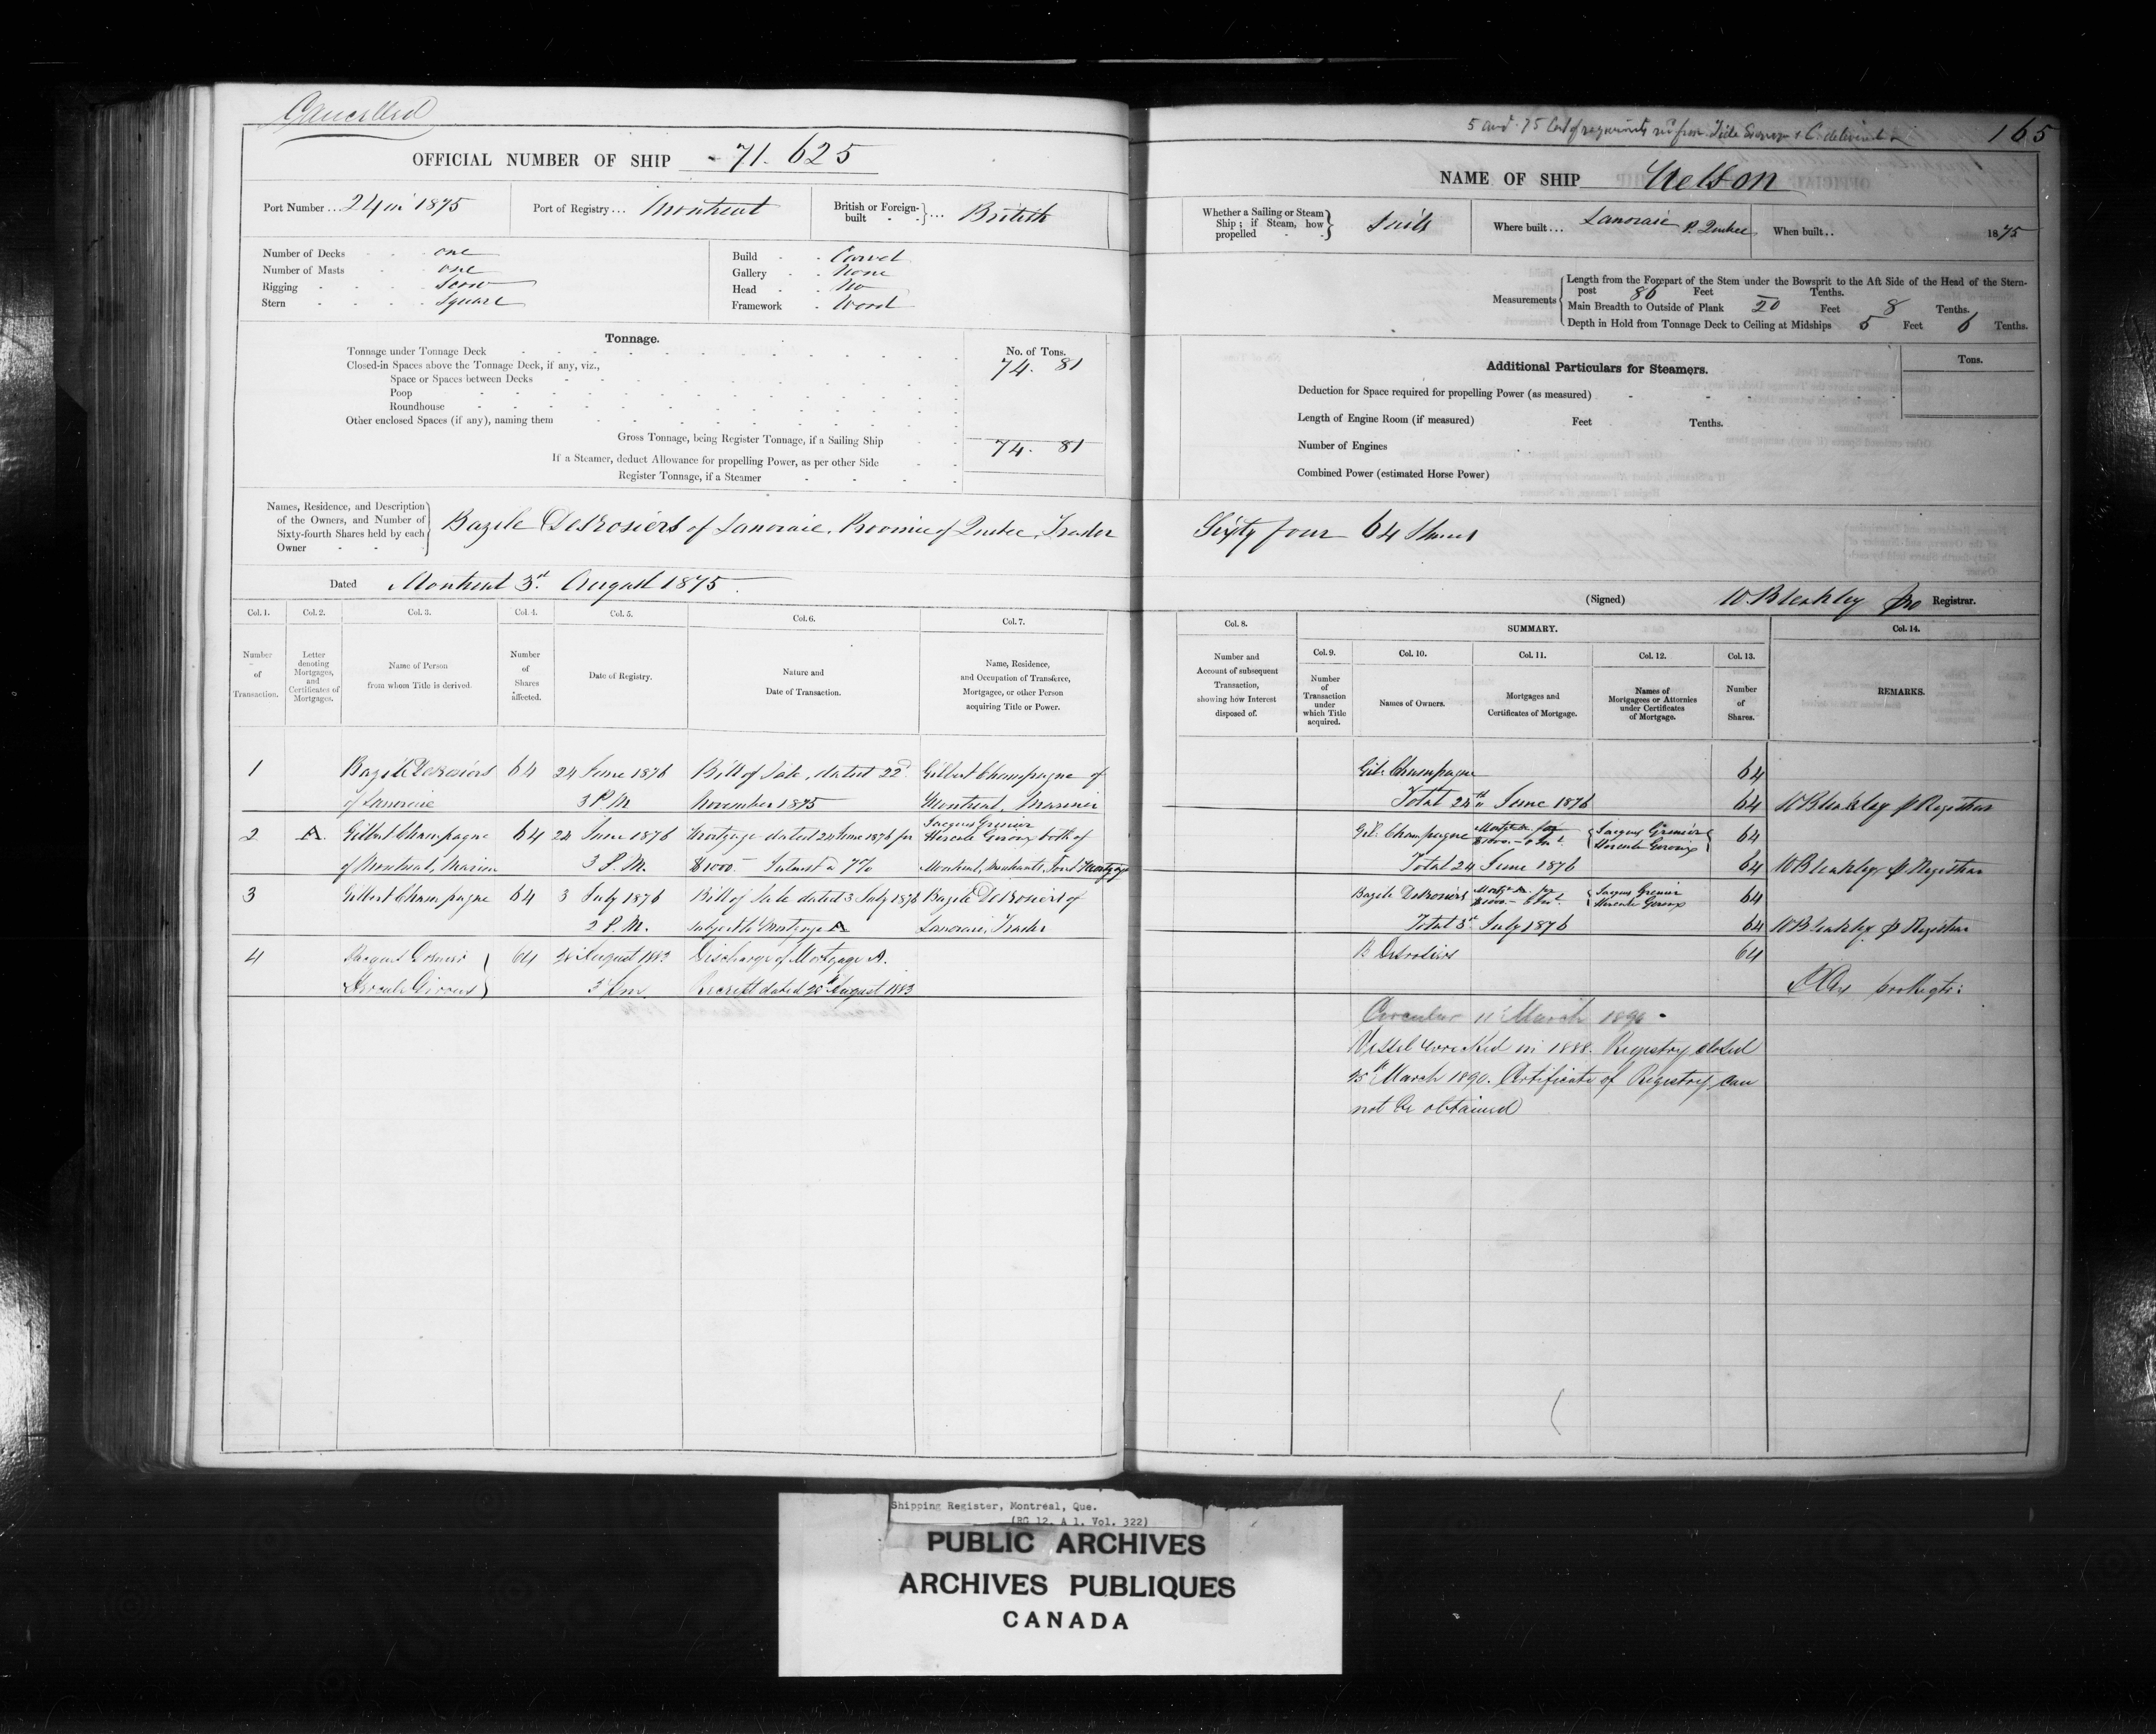 Cancelled
OFFICIAL NUMBER OF SHIP 71.625
Port Number... 24 in 1875
Port of Registry... Montreal
British or Foreign-built } ... British
Number of Decks one
Number of Masts one
Rigging Scow
Stern Square
Build Carvel
Gallery None
Head No
Framework Wood
Tonnage.
No. of Tons.
Tonnage under Tonnage Deck 74. 81
Closed-in Spaces above the Tonnage Deck, if any, viz.,
Space or Spaces between Decks
Poop
Roundhouse
Other enclosed Spaces (if any), naming them
Gross Tonnage, being Register Tonnage, if a Sailing Ship 74. 81
If a Steamer, deduct Allowance for propelling Power, as per other Side
Register Tonnage, if a Steamer
Names, Residence, and Description
of the Owners, and Number of
Sixty-fourth Shares held by each
Owner
Bazile DeRosiers of Lanoraie, Province of Quebec, Trader
Dated Montreal 3rd August 1875.
Col. 1. Col. 2. Col. 3. Col. 4. Col. 5. Col. 6. Col. 7.
Number of Transaction.
Letter denoting Mortgages, and Certificates of Mortgages.
Name of Person from whom Title is derived.
Number of Shares affected.
Date of Registry.
Nature and Date of Transaction.
Name, Residence, and Occupation of Transferee, Mortgagee, or other Person acquiring Title or Power.
1 Bazile DeRosiers 64 24 June 1876 Bill of Sale, dated 22d Gilbert Champagne of
of Lanoraie 3 P.M November 1875 Montreal, Mariner
2 A. Gilbert Champagne 64 24 June 1876 Mortgage dated 24 June 1876 for Jacques Grenier
Hercule Geroux both of
of Montreal, Mariner 3 P.M. $1000 Interest a 7% Montreal, Merchants, Joint Mortgagees
3 Gilbert Champagne 64 3 July 1876 Bill of Sale dated 3 July 1876 Bazile DeRosiers of
2 P.M. subject to Mortgage A Lanoraie, Trader
4 Jacques Grenier 64 28 August 1883 Discharge of Mortgage A.
Hercule Giroux 3 pm. Receipt dated 28th August 1883
165
NAME OF SHIP Nelson
Whether a Sailing or Steam
Ship; if Steam, how
propelled
Sails
Where built... Lanoraie P. Quebec
When built.. 1875
Measurements
Length from the Forepart of the Stem under the Bowsprit to the Aft Side of the Head of the Stern-
post 86 Feet Tenths.
Main Breadth to Outside of Plank 20 Feet 8 Tenths.
Depth in Hold from Tonnage Deck to Ceiling at Midships 5 Feet 6 Tenths.
Additional Particulars for Steamers.
Tons.
Deduction for Space required for propelling Power (as measured)
Length of Engine Room (if measured) Feet Tenths.
Number of Engines
Combined Power (estimated Horse Power)
Sixty four 64 Shares
(Signed) W. Bleakley pro Registrar.
Col. 8. SUMMARY. Col. 14.
Col. 9. Col. 10. Col. 11. Col. 12. Col. 13.
Number and Account of subsequent Transaction, showing how Interest disposed of.
Number of Transaction under which Title acquired.
Names of Owners.
Mortgages and Certificates of Mortgage.
Names of Mortgagees or Attornies under Certificates of Mortgage.
Number of Shares.
REMARKS.
Gil. Champagne 64
Total 24th June 1876 64 W Bleakley p Registrar
Gil. Champagne Mortge A. for $1000.- Jacques Grenier Hercule Geroux 64
Total 24 June 1876 64 W Bleakley p Registrar
Bazile DeRosiers Mortge A. for $1000.- Jacques Grenier Hercule Geroux 64
Total 3rd July 1876 64 W Bleakley p Registrar
B Desrosiers 64
Circular 11 March 1890.
Vessel wrecked in 1888. Registry closed
25th March 1890. Certificate of Registry can
not be obtained
Shipping Register, Montreal, Que.
(RG 12, A 1, Vol. 322)
PUBLIC ARCHIVES
ARCHIVES PUBLIQUES
CANADA